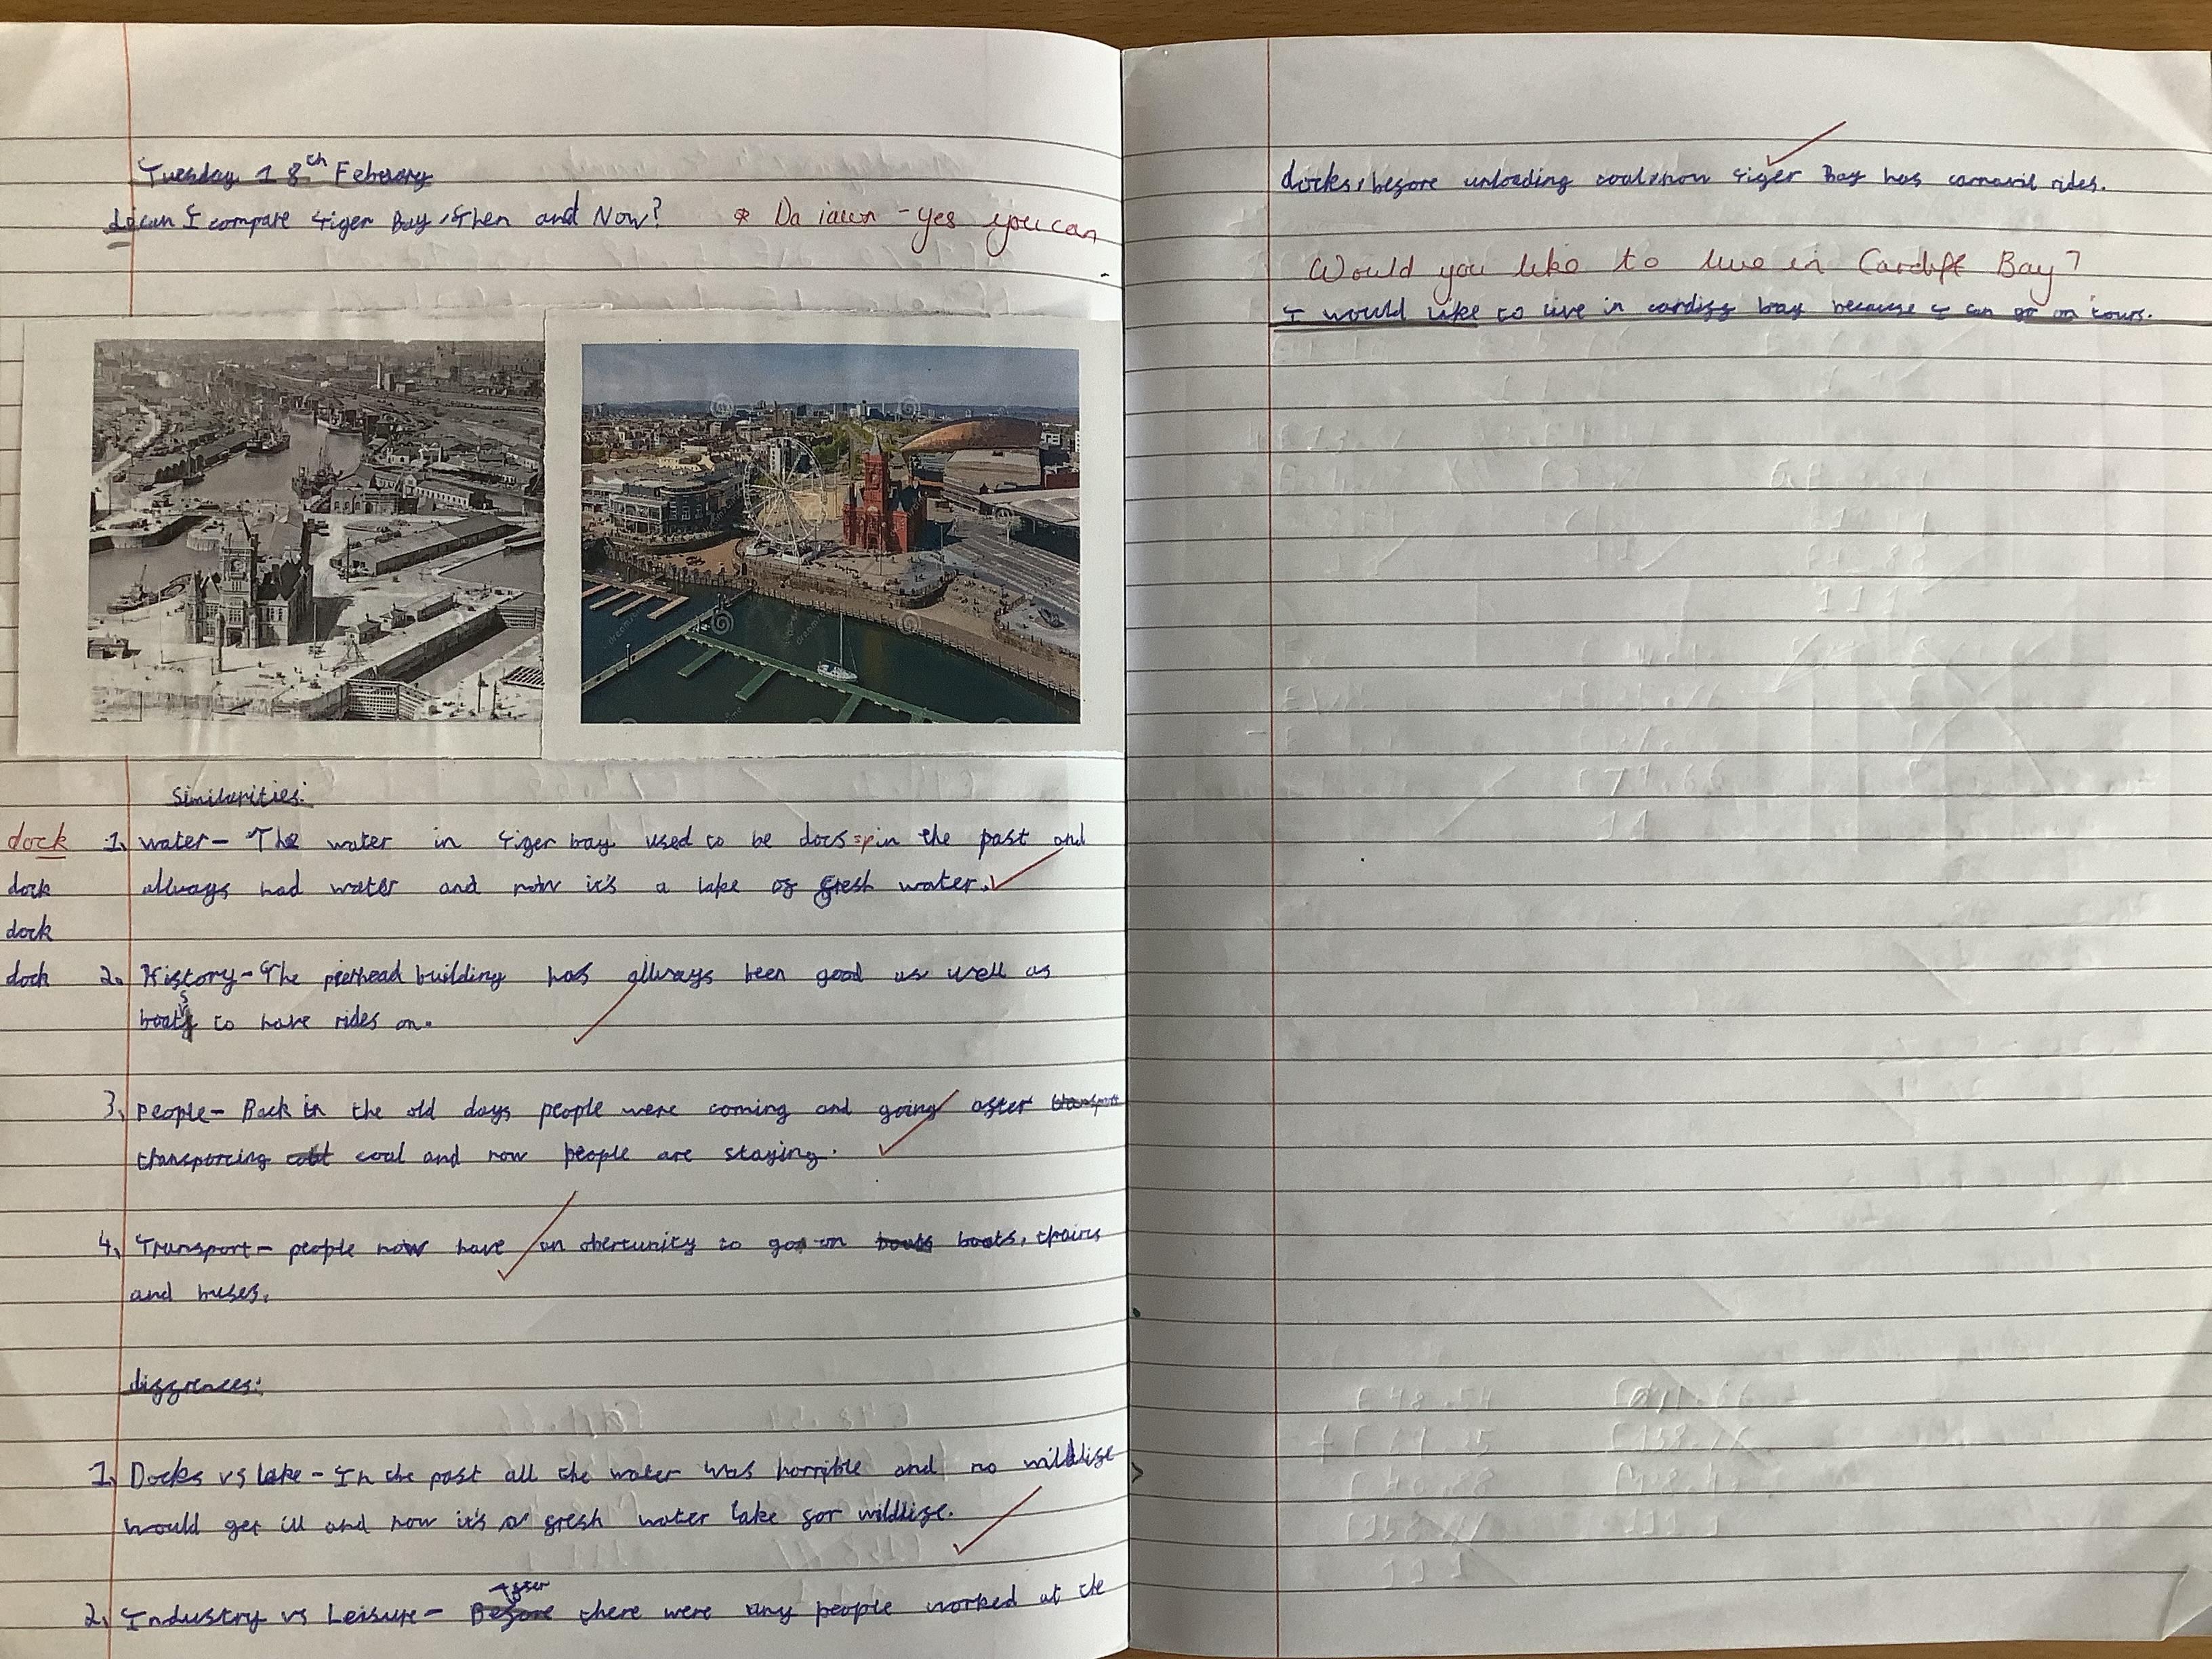 Tuesday 18th Feberary
Lo: can I compare Tiger Bay, Then and Now? * Da iawn - yes you can
Similarities:
dock 1. water - The water in Tiger bay used to be docs sp in the past and
dock allways had water and now it's a lake of fresh water.
dock
dock 2. History - The pierhead building has allways been good as well as
boats to have rides on.
3. people - Back in the old days people were coming and going after transport
transporting coal and now people are staying.
4. Transport - people now have an obertunity to go on boats boats, trains
and buses.
diffrences:
1. Docks vs lake - In the past all the water was horrible and no wildlife
would get ill and now it's a fresh water lake for wildlife.
2. Industry vs Leisure - Before After there were any people worked at the
docks, before unloading coal now Tiger Bay has carnavil rides.
Would you like to live in Cardiff Bay?
I would like to live in cardiff bay because I can go on tours.